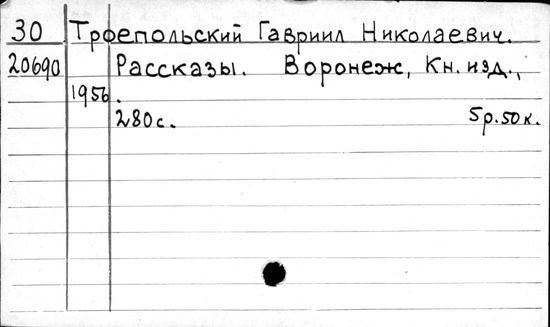 30 Троепольский Гавриил Николаевич.
20690 Рассказы. Воронеж, Кн. изд.,
1956.
280с. 5р.50к.